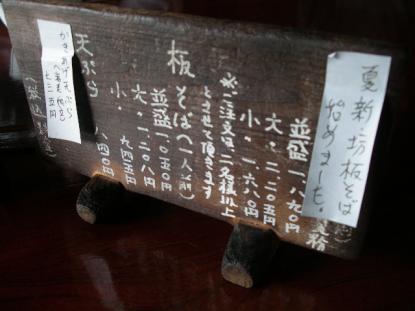 夏新坊板そば
始めました。
並盛一八九〇円
大・二二〇五円
小・一六八〇円
※ご注文は二名様以上
とさせて頂きます
板そば(一人前)
並盛一〇五〇円
大・一二〇八円
小・九四五円
天ぷら 八四〇円
かきあげ天ぷら
七三五円